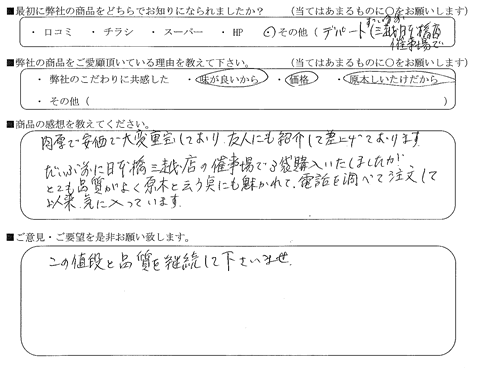 ■最初に弊社の商品をどちらでお知りになられましたか？　（当てはまるものに○をお願いします）
・ 口コミ　・ チラシ　・ スーパー　・ HP　・ その他（ デパート（三越日本橋店
催事場で
■弊社の商品をご愛顧頂いている理由を教えて下さい。　（当てはまるものに○をお願いします）
・ 弊社のこだわりに共感した　・ 味が良いから　・ 価格　・ 原木しいたけだから
・ その他（　　　）
■商品の感想を教えてください。
肉厚で安価で大変重宝しており、友人にも紹介して差上げております。
だいぶ前に日本橋三越店の催事場で3袋購入いたしましたが、
とても品質がよく原木と云う点にも魅かれて、電話を調べて注文して
以来気に入っています。
■ご意見・ご要望を是非お願い致します。
この値段と品質を継続して下さいませ。